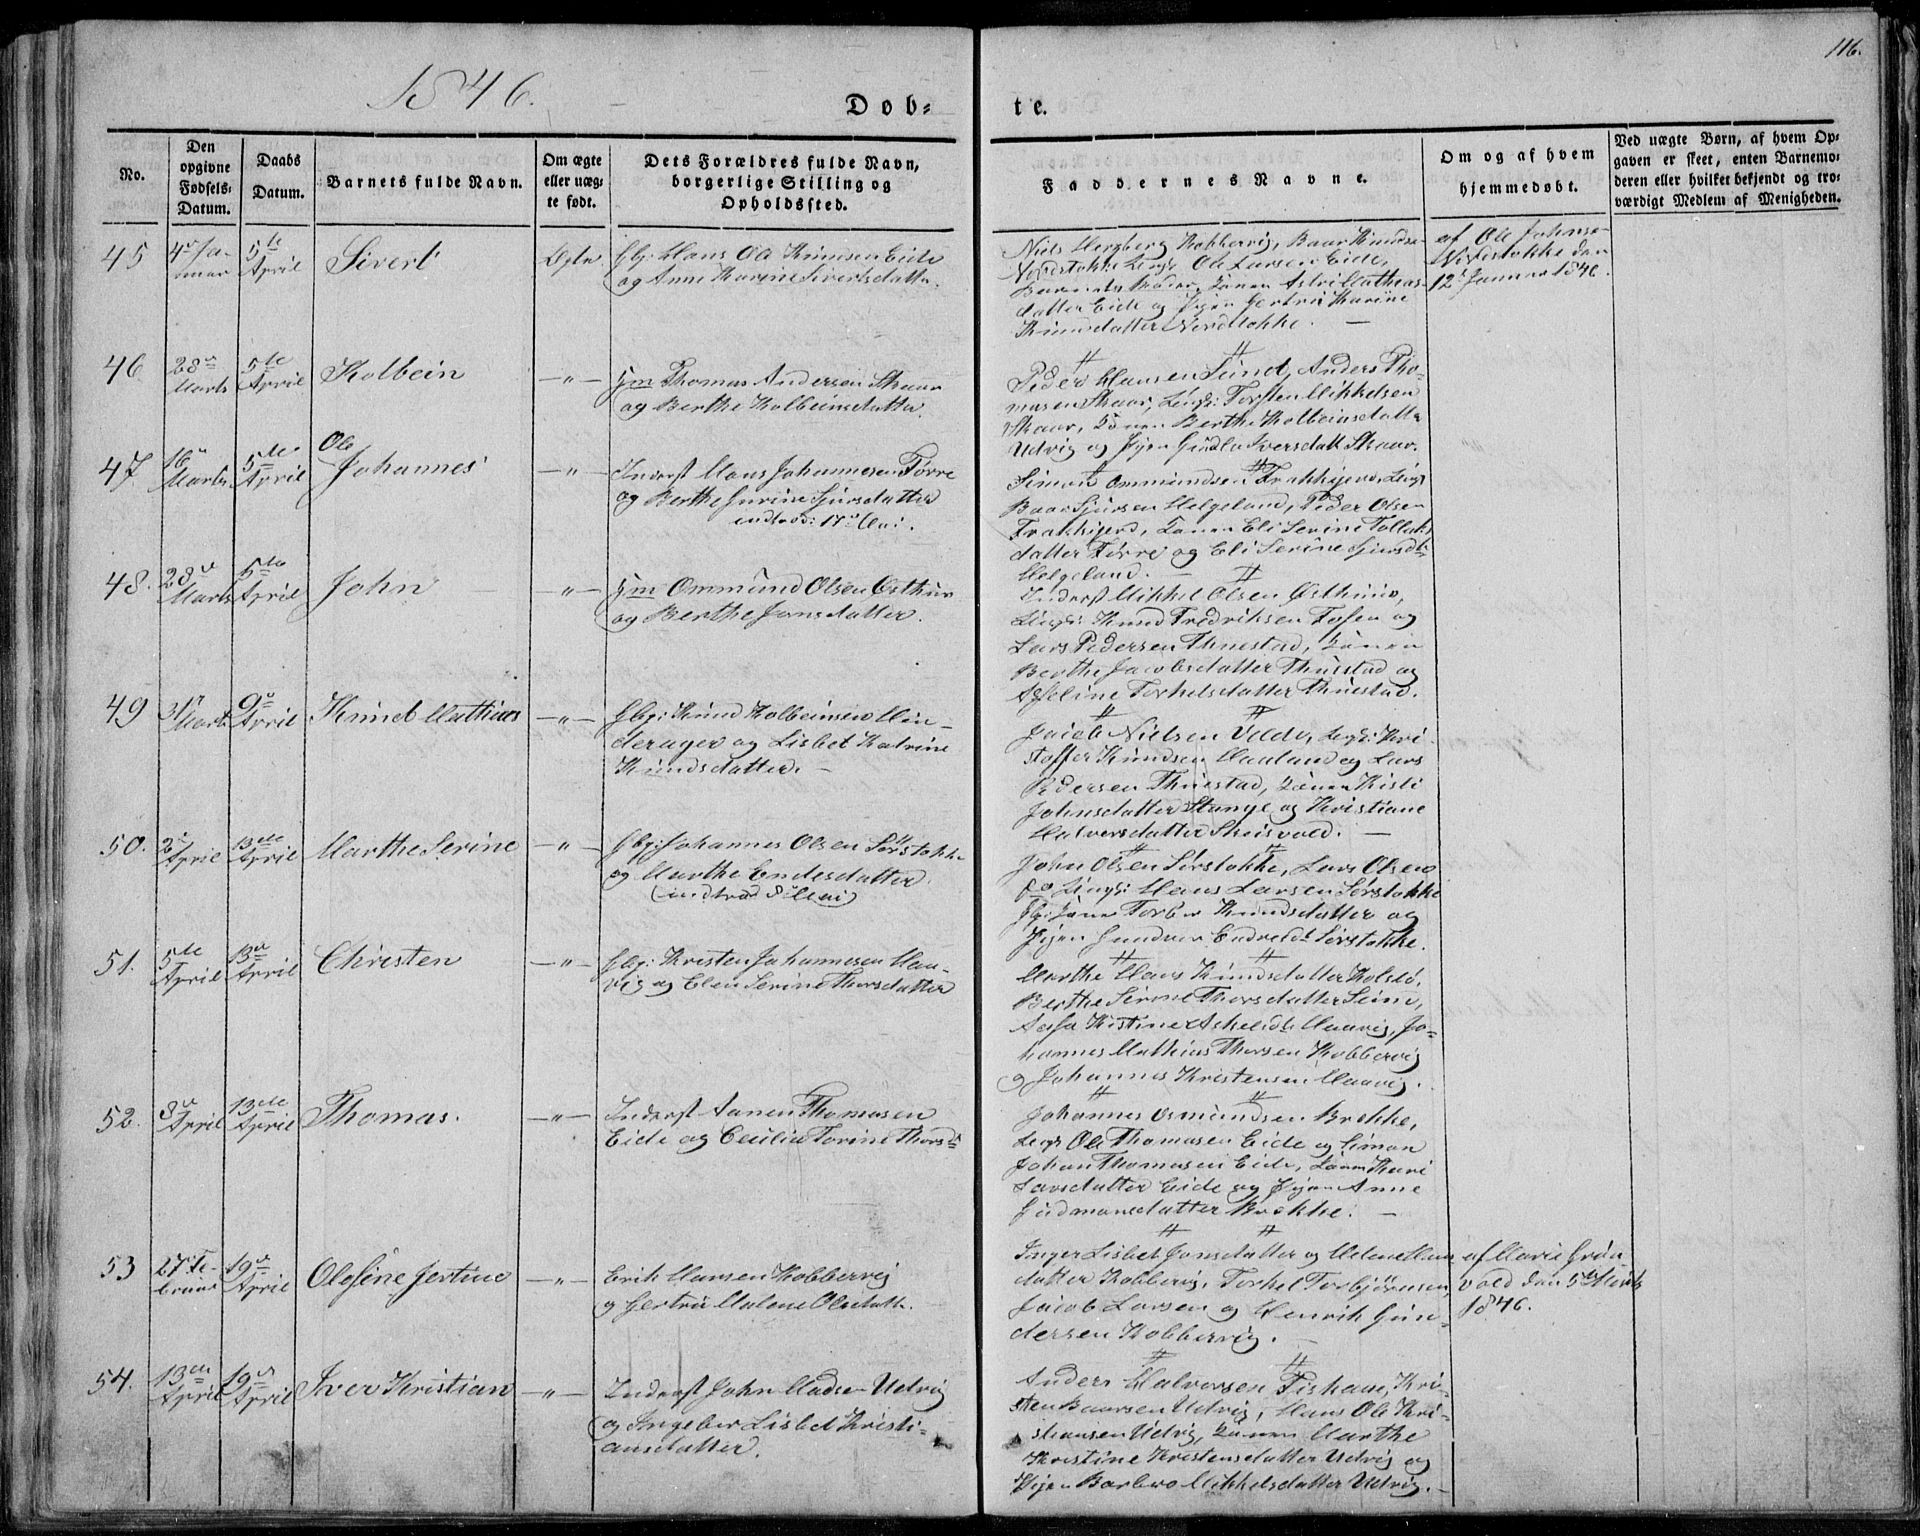 1846.
116.
Døb-
te.
No.
Den opgivne Fødsels-Datum.
Daabs Datum.
Barnets fulde Navn.
Om ægte eller uægte født.
Dets Forældres fulde Navn, borgerlige Stilling og Opholdssted.
Faddernes Navne.
Om og af hvem hjemmedøbt.
Ved uægte Børn, af hvem Opgaven er skeet, enten Barnemoderen eller hvilket bekjendt og troværdigt Medlem af Menigheden.
45
5te April
Sivert
Hans Ole Knudsen Eide
og Anne Karine Sivertsdatter.
Niels
Ole Larsen Eide,
datter Eide og Pigen
Knudsdatter Nordstokke.
af Ole Johns-
Nordstokke den
12 Januar 1846.
46
28 Marts
5te April
Kolbein
— " —
Gm Thomas Andersen Skaar
og Berthe Kolbeinsdatter.
Peder Hansen Sund, Anders Tho-
masen Skaar, Torsten Mikkelsen
Skaar, Konen Berthe Kolbeinsdatt.
Udvig og Pigen Iversdatt. Skaar.
47
16 Marts
5te April
Ole
Johannes
— " —
Inderst Hans Johannesen Førre
og Berthe Gurine Sjursdatter
indtrad: 17 Mai.
Simon Ommundsen
Baar Sjursen Helgeland, Peder Olsen
Konen Eli Serine
datter Førre og Eli Serine Sjursdt
Helgeland.
48.
28 Marts
5te April
John
— " —
Gm Ommund Olsen Østhuus
og Berthe Jonsdatter.
Inderst Mikkel Olsen Østhuus,
Knud Fredriksen Fosen og
Lars Pedersen Thuestad, Konen
Berthe Jacobsdatter Thuestad og
Torkelsdatter Thuestad.
49
31 Marts
9 April
Knud Mathias
— " —
Gbr: Knud Kolbeinsen Hin-
derager og Lisbet Katrine
Knudsdatter. —
Jacob Nielsen Vilde, Kri-
stoffer Knudsen Haaland og Lars
Pedersen Thuestad, Konen Kisti
Johnsdatter Stange og Kristiane
Halversdatter Skeisvold. —
50.
2 April
13de April
Marthe Serine
— " —
Gbr: Johannes Olsen Sørstokke
og Marthe Endresdatter.
(indtrad 8 Mai)
John Olsen Sørstokke, Lars Olsen
Hans Larsen Sørstokke
Knudsdatter og
Pigen Gunder Endresdt Sørstokke.
51.
5te April
13de April
Christen
— " —
Gbr: Kristen Johannesen Haa-
vig og Elen Serine Thorsdatter
Marthe Hans Knudsdatter Kolstø,
Berthe Serine Thorsdatter
Kistine Haavig, Jo-
hannes Mathias Thorsen Kobbervig
og Johannes Kristensen Haavig.
52.
8 April
13de April
Thomas.
— " —
Inderst Aanen Thomasen
Eide og Cecilia Torine Thorsdt
Johannes Osmundsen Brekke,
Ole Thomasen Eide og Simon
Johan Thomasen Eide, Konen Kari
Larsdatter Eide og Pigen Anne
Gudmansdatter Brekke. —
53
27 Februar
19 April
Olesine Jertine
— " —
Erik Hansen Kobbervig
og Gertru Malene Olsdatt.
Inger Lisbet Jonsdatter og Helene Han
datter Kobbervig, Torkel Torbjørnsen,
Jacob Larsen og Henrik Gun-
dersen Kobbervig.
af Marie Grøn
vold den 5te Marts
1846.
54.
13de April
19 April
Iver Kristian
— " —
Inderst John Madsen Udvig
og Ingeber Lisbet Kristi-
ansdatter.
Anders Halvorsen Fiskaae, Kri-
sten Baarsen Udvig, Hans Ole Kri-
stiansen Udvig, Konen Marthe
Kristine Kristensdatter Udvig og
Pigen Barbro Mikkelsdatter Udvig. —